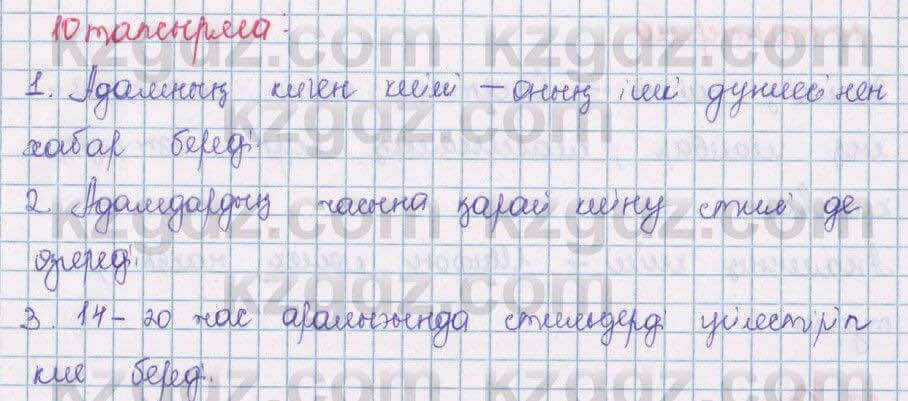 10 тапсырма.
1. Адамның киген киімі – оның ішкі дүниесінен
хабар береді.
2. Адамдардың жасына қарай киіну стилі де
өзгереді.
3. 14-20 жас аралығында стильдерді үйлестіріп
кие береді.
kzgdz.com